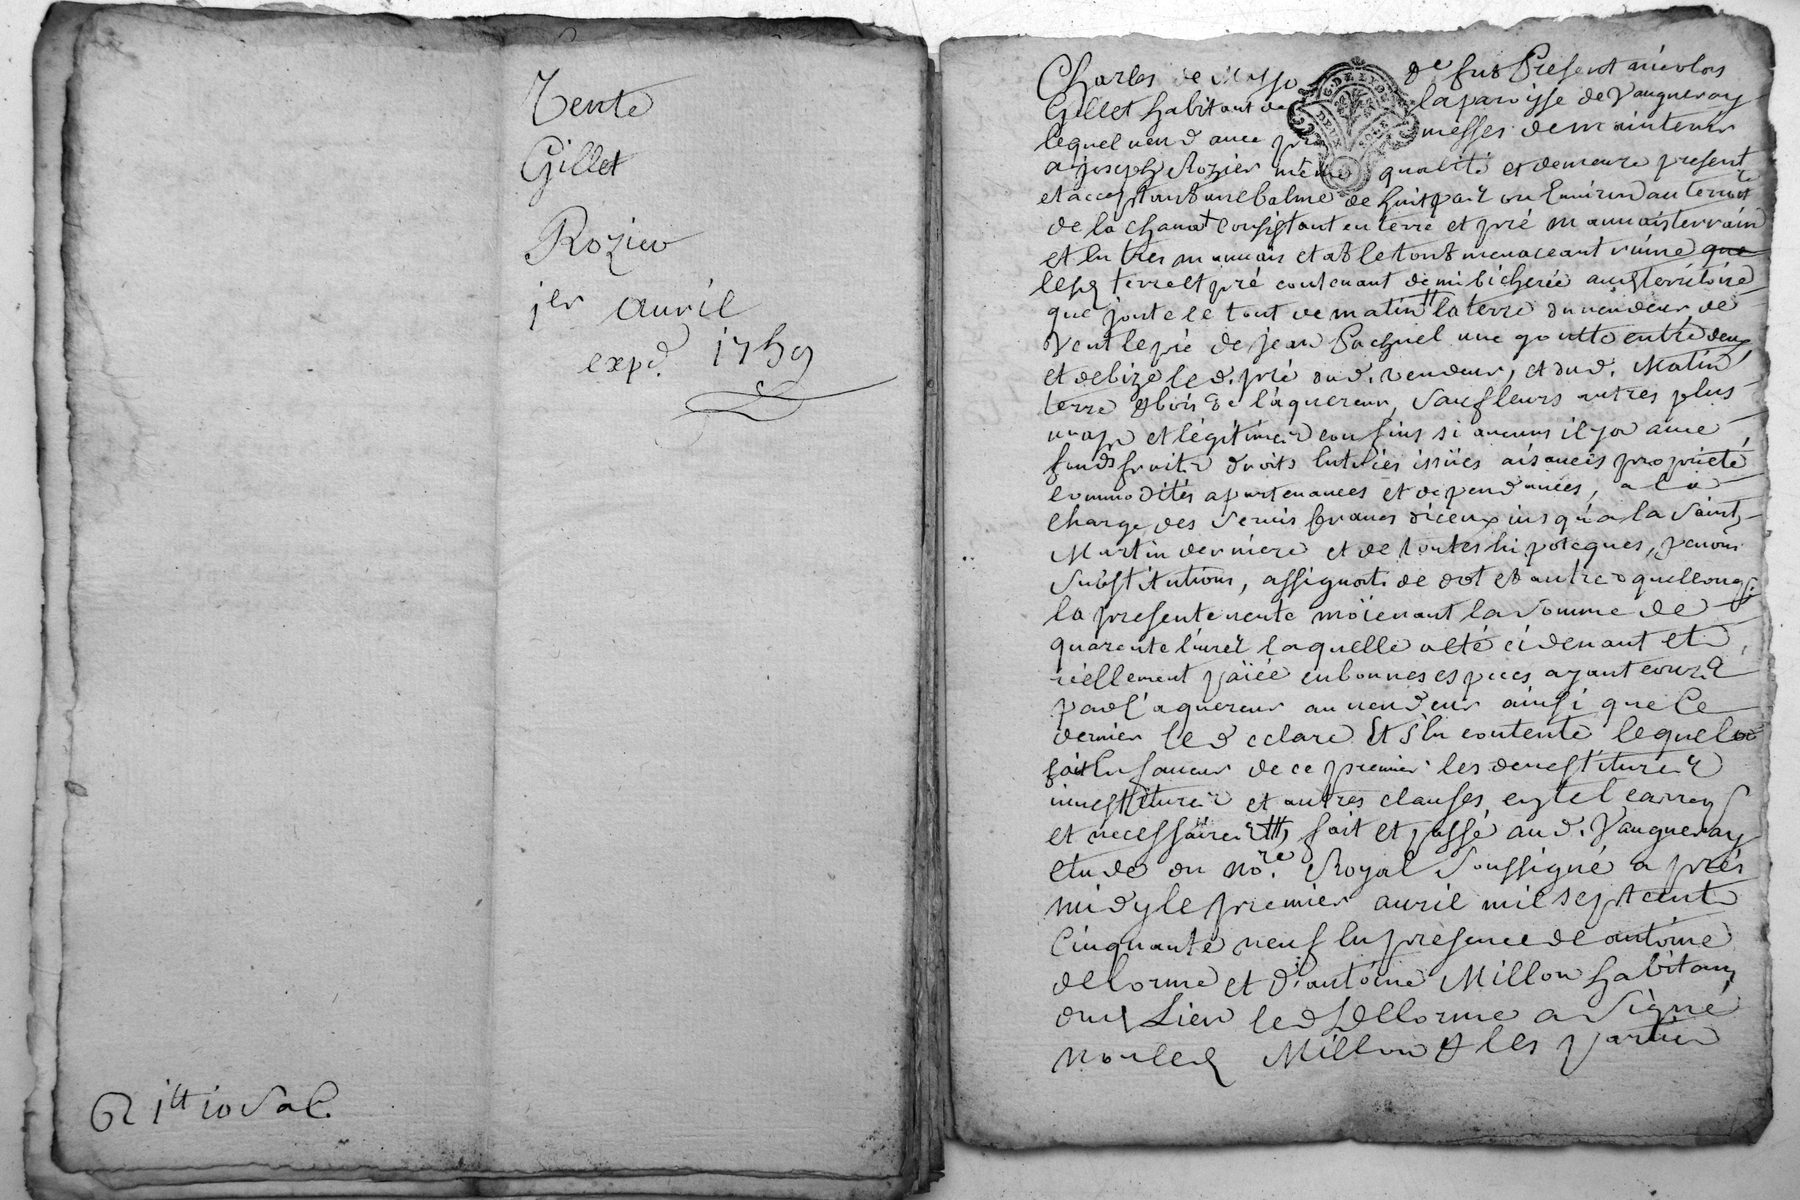 Vente
Gillet
Rozier
1er avril
expd. 1759
1tt 10 s
Charles de de fut Present nicolas
Gillet habitant de la paroisse de Vaugneray
lequel vend avec promesses de maintenir
a joseph Rozier même qualité et demeure present
et acceptant une balme de huit pas ou Environ au
de la chanat Consistant en terre et pré mauvais terrain
et en tres mauvais etat le tout menaceant ruine que
lesd terre et pré contenant demi bicherée aud territoire
que jouxte le tout de matin la terre du vendeur, de
Vent le pré de jean une goutte entre deux
et de bize le d. pré dud. vendeur, et dud. Matin
terre & bois de l'aquereur, Sauf leurs autres plus
vrays et légitimes confins si aucuns il y a avec
fonds fruits droits entrées issües aisances proprieté
commodités apartenances et dependances, a la
charge des Servis francs diceux jusqu'a la Saint
Martin derniere et de toutes hipoteques,
Substitutions, assignats de dot et autres quelconqs
la presente vente moïenant la Somme de
quarante livres laquelle a eté ci devant et
réellement païée en bonnes especes ayant cours
par l'aquereur au vendeur ainsi que ce
dernier le declare Et s'en contente lequel
fait En faveur de ce premier les devestitures
investitures et autres clauses, en tel cas
et necessaires fait et passé aud. Vaugneray
etude du nore. Royal Soussigné a prés
midy le premier avril mil sept cent
Cinquante neuf En presence de antoine
delorme et d'antoine Millon habitans
dud Lieu led Dellorme a Signé
non led Millon & les parties